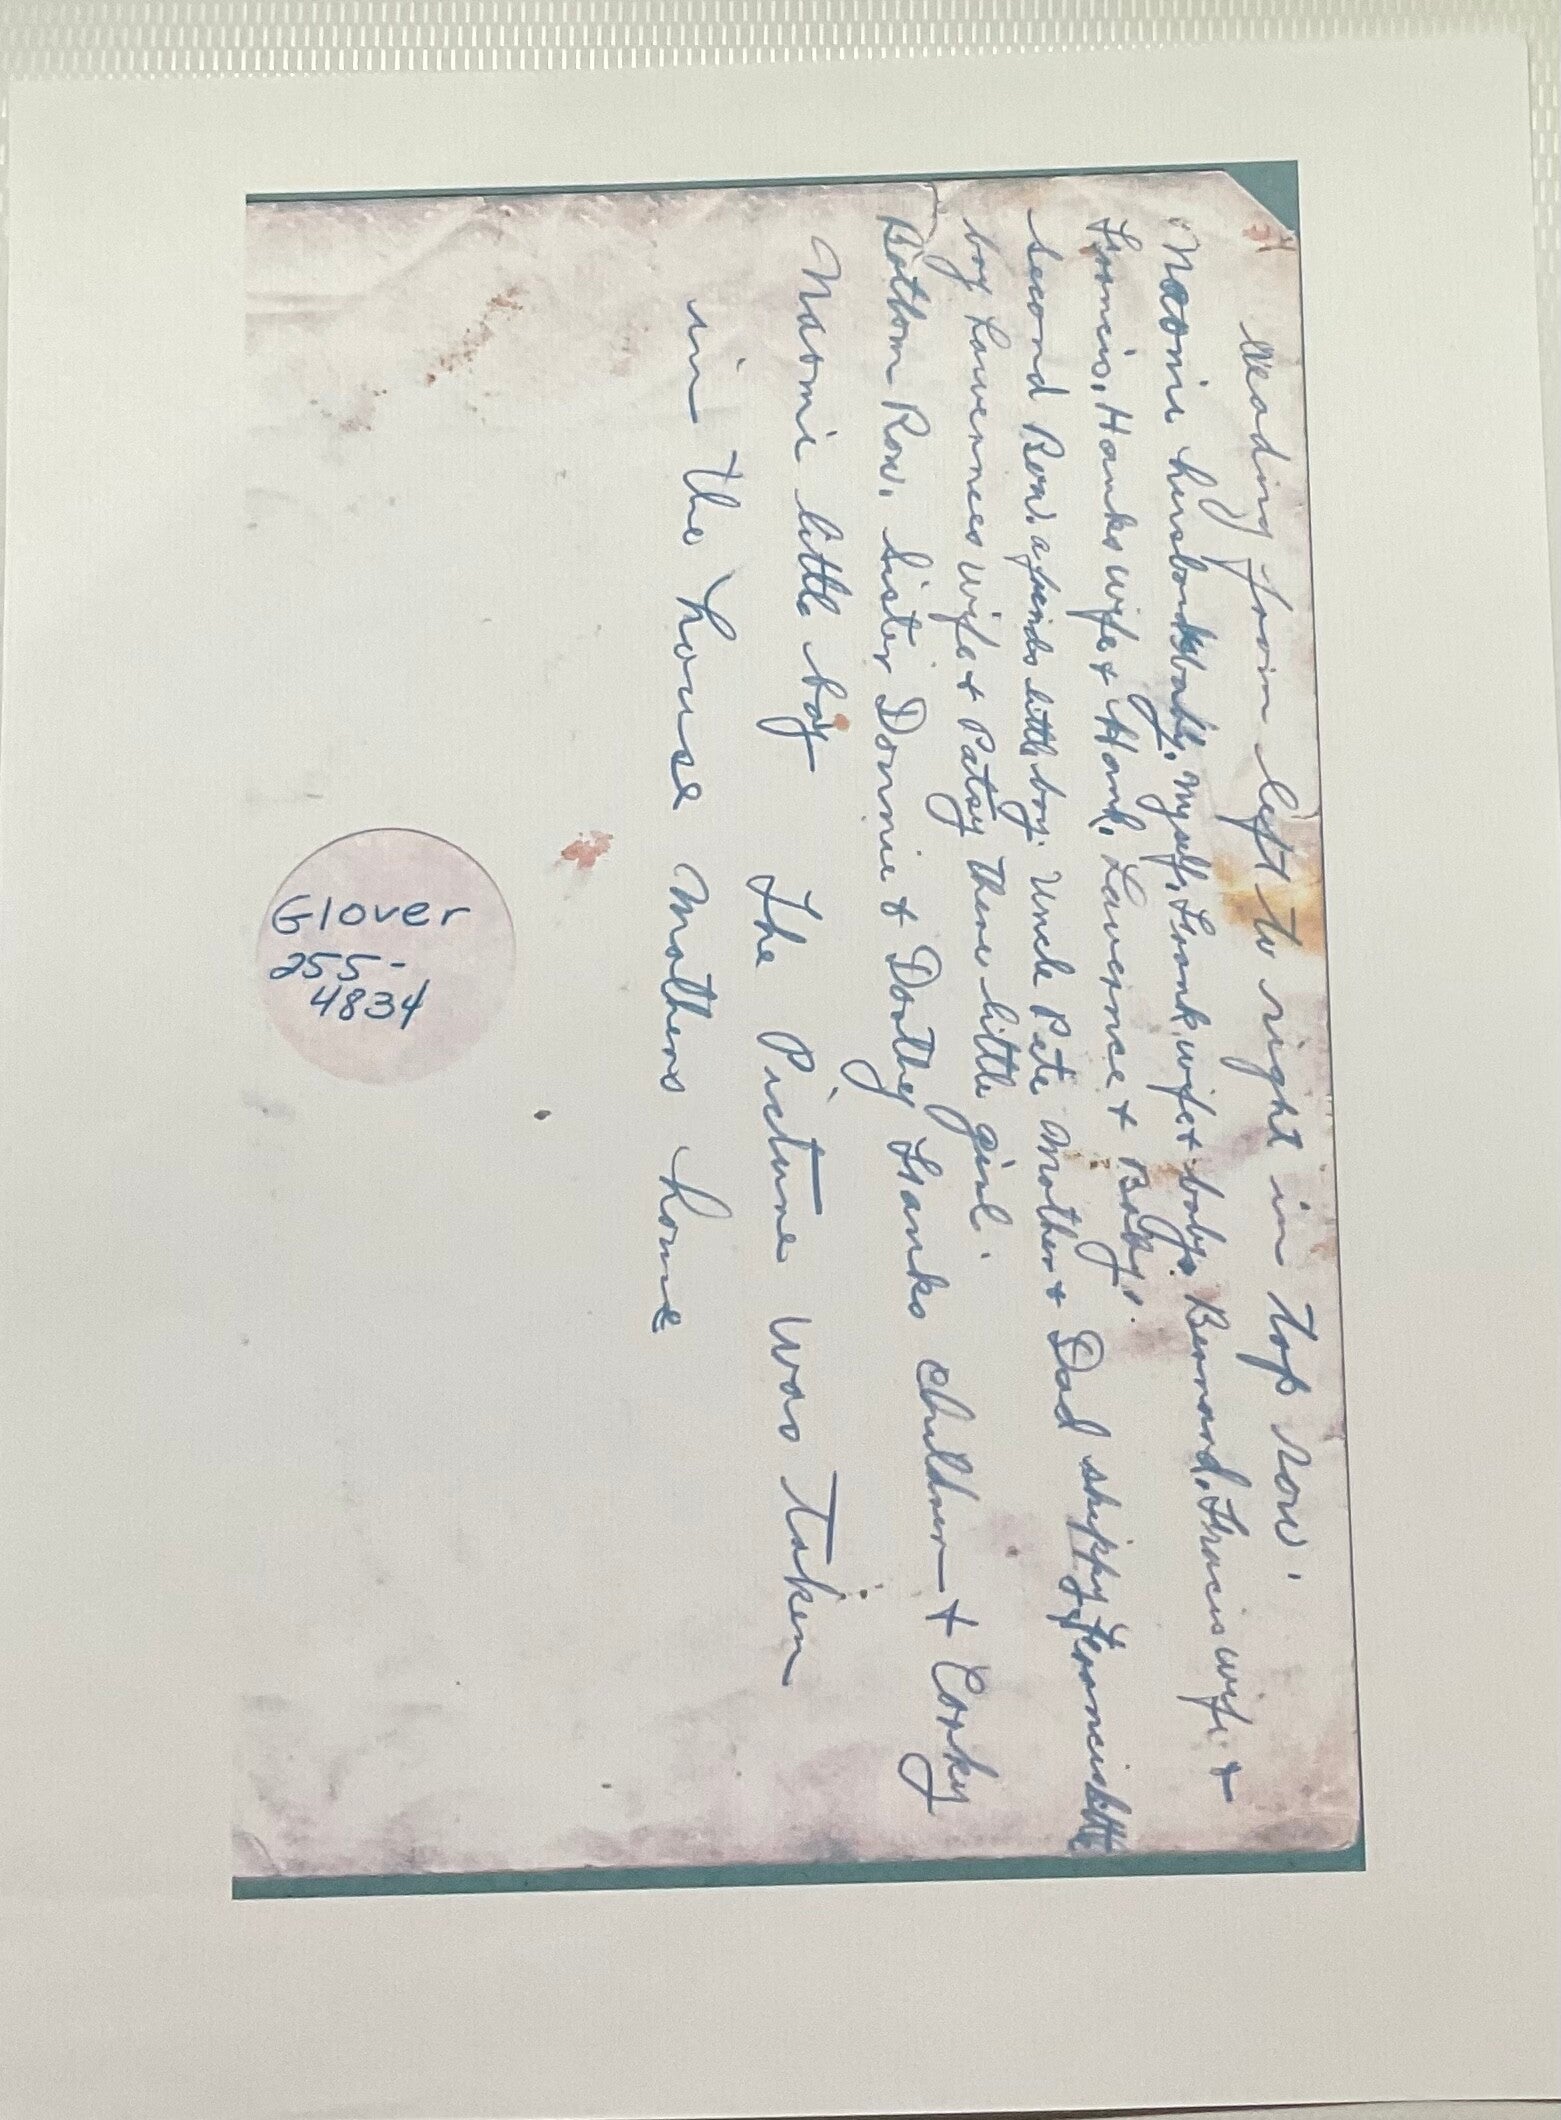 Reading from left to right in top row.
Naomi husband & baby, myself, Frank, wife & baby. Bernard, Francis wife &
Francis, Hanks wife & Hank, Lavernce & Baby.
Second Row. a friends little boy. Uncle Pete Mother & Dad skippy, Francis little
boy Lavernces wife & Patsy there little girl.
Bottom Row. Sister Donnie & Doothy Franks children & Corky
Naomi little boy The Picture was taken
in the house Mothers home
Glover
255-
4834